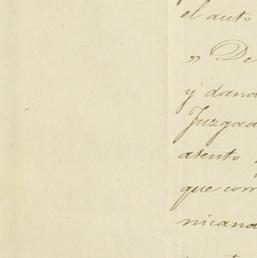 el auto
„ De
y dand
Juzgad
atento
que corr
nicand